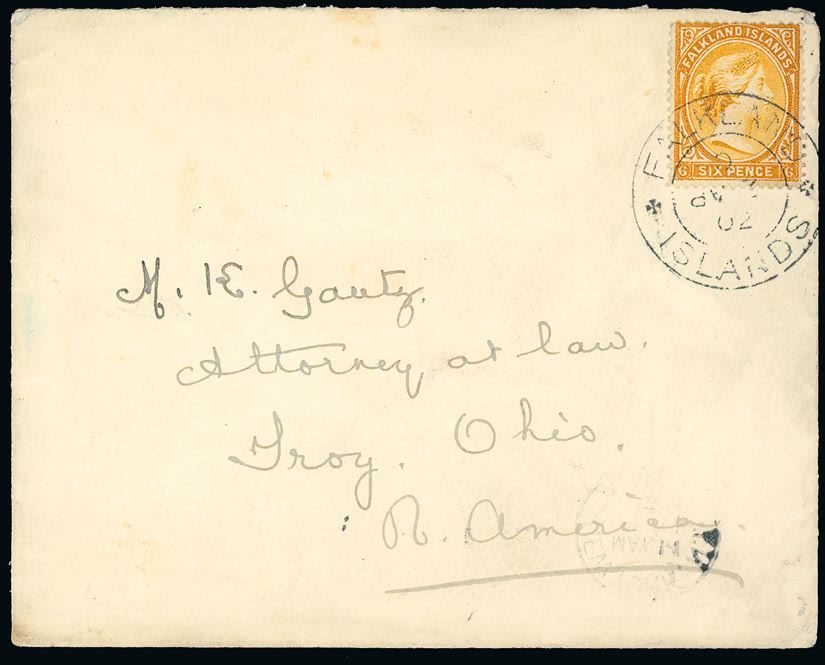 FALKLAND ISLANDS
6 SIX PENCE 6
FALKLAND
02
ISLANDS
M. K. Gantz.
Attorney at law.
Troy. Ohio.
N. America.